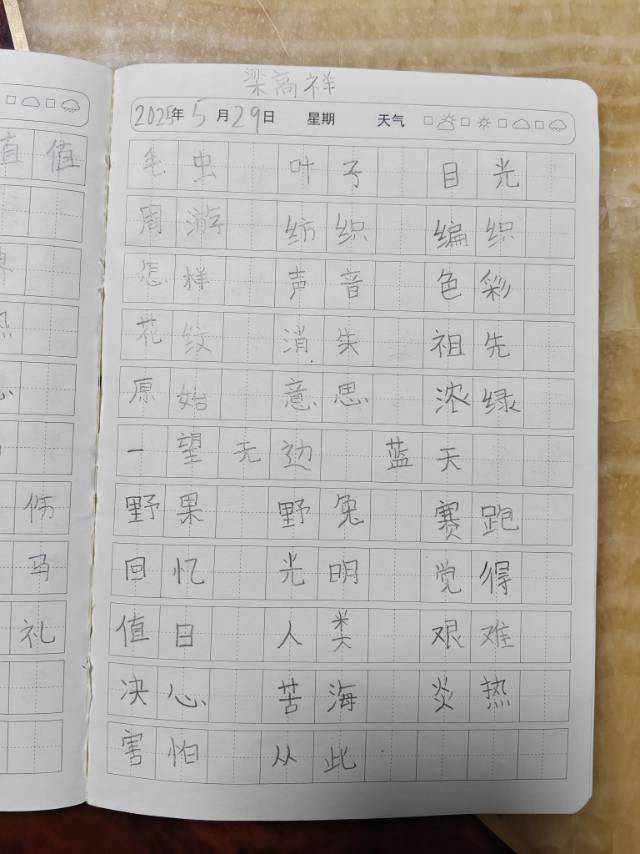 梁高祥
2025年5月29日 星期 天气
毛虫 叶子 目光
周游 纺织 编织
怎样 声音 色彩
花纹 消失 祖先
原始 意思 浓绿
一望无边 蓝天
野果 野兔 赛跑
回忆 光明 觉得
值日 人类 艰难
决心 苦海 炎热
害怕 从此
值
伟
马
礼